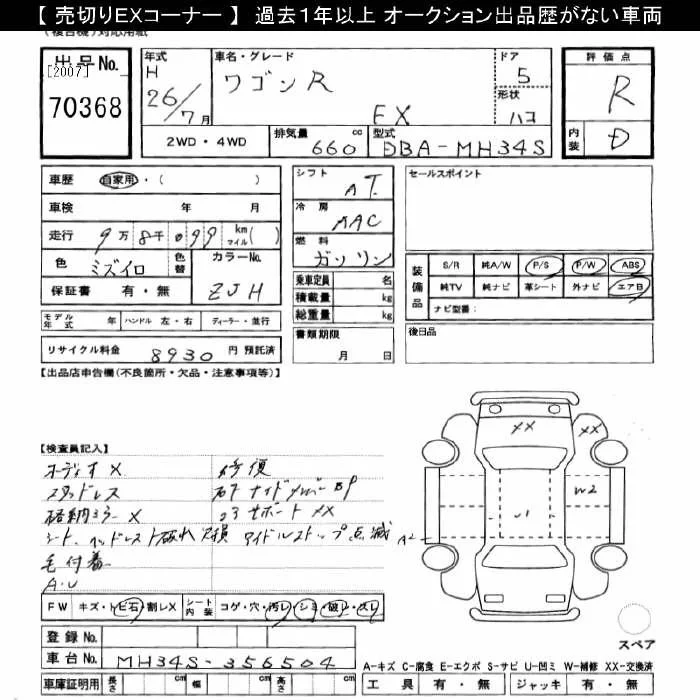 【 売切りEXコーナー 】 過去1年以上 オークション出品歴がない車両
出品No.
[2007]
70368
年式
H
26/7月
車名・グレード
ワゴンR
FX
ドア
5
形状
ハコ
評価点
R
内装
D
2WD・4WD
排気量
660
cc
型式
DBA-MH34S
車歴
自家用・( )
車検
年 月
走行
9万8千099
km
マイル( )
色
ミズイロ
色替
カラーNo.
ZJH
保証書
有・無
モデル年式
年
ハンドル 左・右
ディーラー・並行
リサイクル料金
8930
円 預託済
シフト
AT
冷房
AAC
燃料
ガソリン
乗車定員
名
積載量
kg
総重量
kg
書類期限
月 日
セールスポイント
装備品
S/R
純A/W
P/S
P/W
ABS
純TV
純ナビ
革シート
外ナビ
エアB
ナビ型番:
後日品
【出品店申告欄(不良箇所・欠品・注意事項等)】
【検査員記入】
オーディオX
スタッドレス
格納ミラーX
シート、ヘッドレスト破れ欠損
毛付着
修復
アイドルストップ点滅
XX
XX
W2
A2
FW
キズ・トビ石・割レX
シート内装
コゲ・穴・汚レ・シミ・破レ・スレ
登録No.
車台No.
MH34S-356504
車庫証明用
長さ
cm
幅
cm
高さ
cm
スペア
A-キズ C-腐食 E-エクボ S-サビ U-凹ミ W-補修 XX-交換済
工具
有・無
ジャッキ
有・無